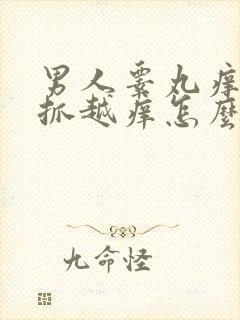 男人睾丸痒
抓越痒怎麼
九命怪